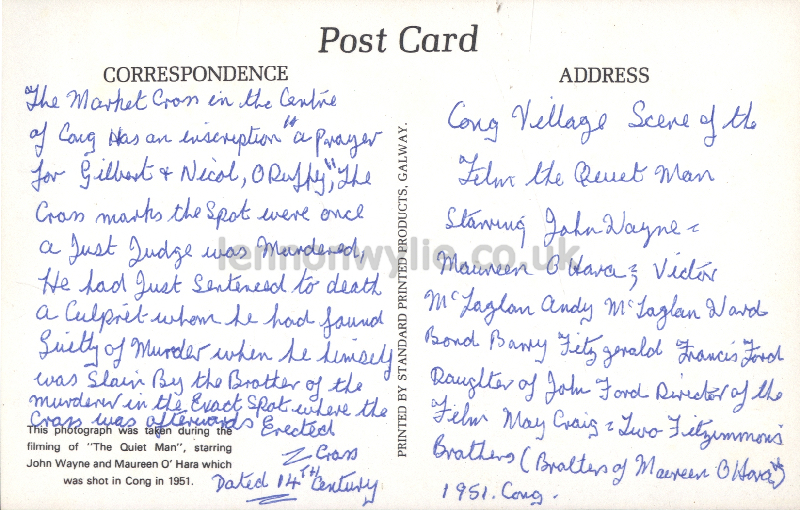 Post Card
CORRESPONDENCE
The Market Cross in the Centre
of Cong Has an inscription "a prayer
for Gilbert & Nicol, O Duffy", The
Cross marks the Spot were once
a Just Judge was Murdered,
He had Just Sentenced to death
a Culpret whom he had found
Guilty of Murder when he himself
was Slain By the Brother of the
murderer in the Exact Spot where the
Cross was afterwards Erected
Cross
Dated 14TH Century
This photograph was taken during the
filming of "The Quiet Man", starring
John Wayne and Maureen O' Hara which
was shot in Cong in 1951.
PRINTED BY STANDARD PRINTED PRODUCTS, GALWAY.
ADDRESS
Cong Village Scene of the
Film the Quiet Man
Starring John Wayne =
Maureen O Hara & Victor
McLaglan Andy McLaglan Ward
Bond Barry Fitzgerald Francis Ford
Daughter of John Ford Director of the
Film May Craig = Two Fitzimmons
Brothers (Brothers of Maureen O Hara")
1951. Cong.
lennonwylie.co.uk